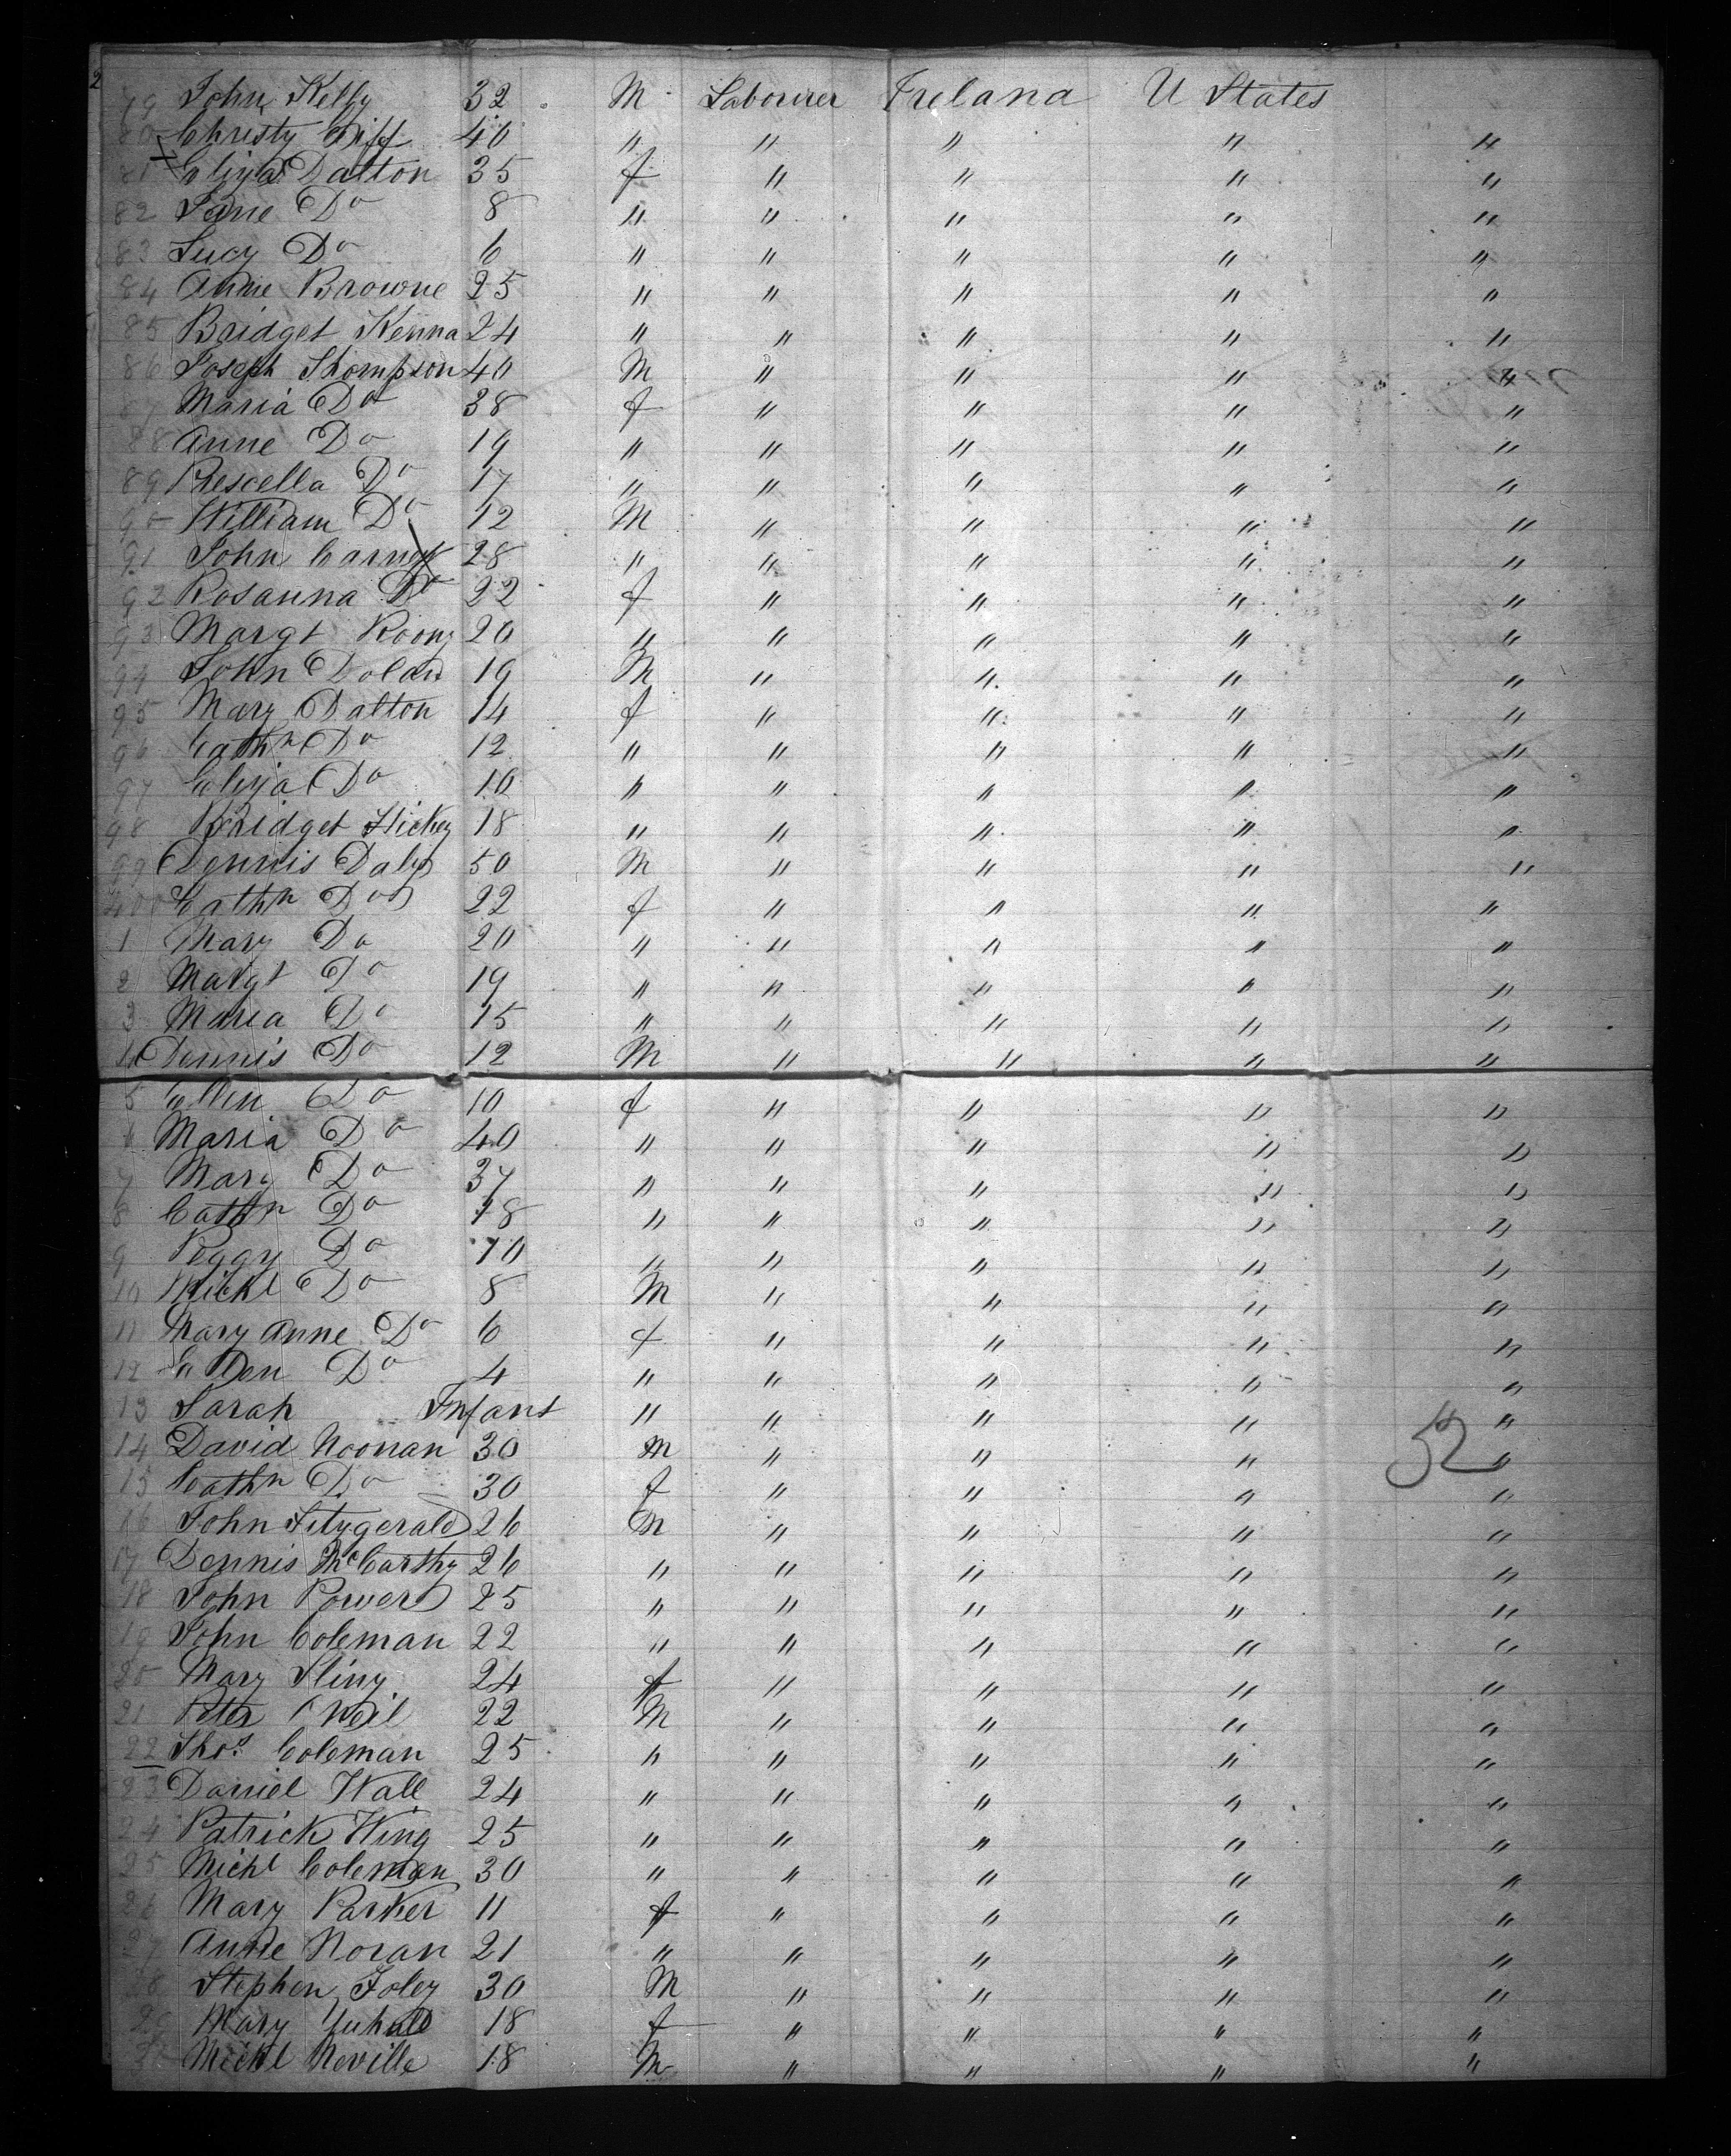 2
79 John Kelly 32 M Labourer Ireland U States
80 Christy 40 " " " " "
81 Eliza Dalton 35 f " " " "
82 Jane Do 8 " " " " "
83 Lucy Do 6 " " " " "
84 Anne Browne 25 " " " " "
85 Bridget Kenna 24 " " " " "
86 Joseph Thompson 40 M " " " "
87 Maria Do 38 f " " " "
88 Anne Do 19 " " " " "
89 Prescella Do 17 " " " " "
90 William Do 12 M " " " "
91 John Carney 28 " " " " "
92 Rosanna Do 22 f " " " "
93 Margt Roony 20 " " " " "
94 John Dolan 19 M " " " "
95 Mary Dalton 14 f " " " "
96 Cathn Do 12 " " " " "
97 Eliza Do 10 " " " " "
98 Bridget Hickey 18 " " " " "
99 Dennis Daly 50 M " " " "
400 Cathn Do 22 f " " " "
1 Mary Do 20 " " " " "
2 Margt Do 19 " " " " "
3 Maria Do 15 " " " " "
4 Dennis Do 12 M " " " "
5 Ellen Do 10 f " " " "
6 Maria Do 40 " " " " "
7 Mary Do 37 " " " " "
8 Cathn Do 18 " " " " "
9 Peggy Do 10 " " " " "
10 Michl Do 8 M " " " "
11 Mary Anne Do 6 f " " " "
12 Ellen Do 4 " " " " "
13 Sarah Infant " " " " "
14 David Noonan 30 M " " " "
52
15 Cathn Do 30 f " " " "
16 John Fitzgerald 26 M " " " "
17 Dennis McCarthy 26 " " " " "
18 John Power 25 " " " " "
19 John Coleman 22 " " " " "
20 Mary 24 f " " " "
21 Peter ONeil 22 M " " " "
22 Thos. Coleman 25 " " " " "
23 Daniel Wall 24 " " " " "
24 Patrick Wing 25 " " " " "
25 Michl Coleman 30 " " " " "
26 Mary Parker 11 f " " " "
27 Anne Horan 21 " " " " "
28 Stephen Foley 30 M " " " "
29 Mary 18 f " " " "
30 Michl Neville 18 M " " " "